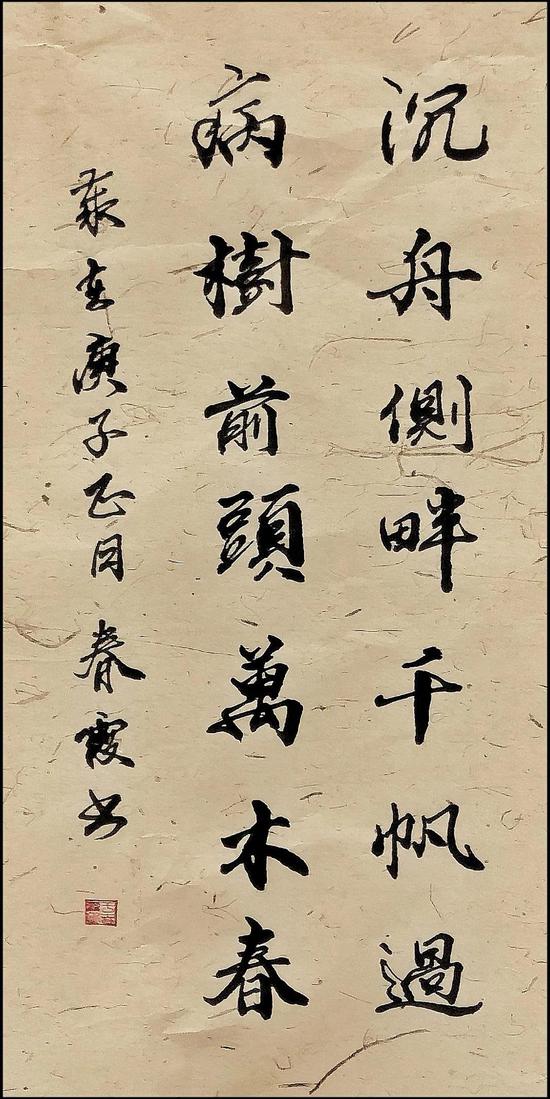 沉舟側畔千帆過
病樹前頭萬木春
歲在庚子正月春霞书